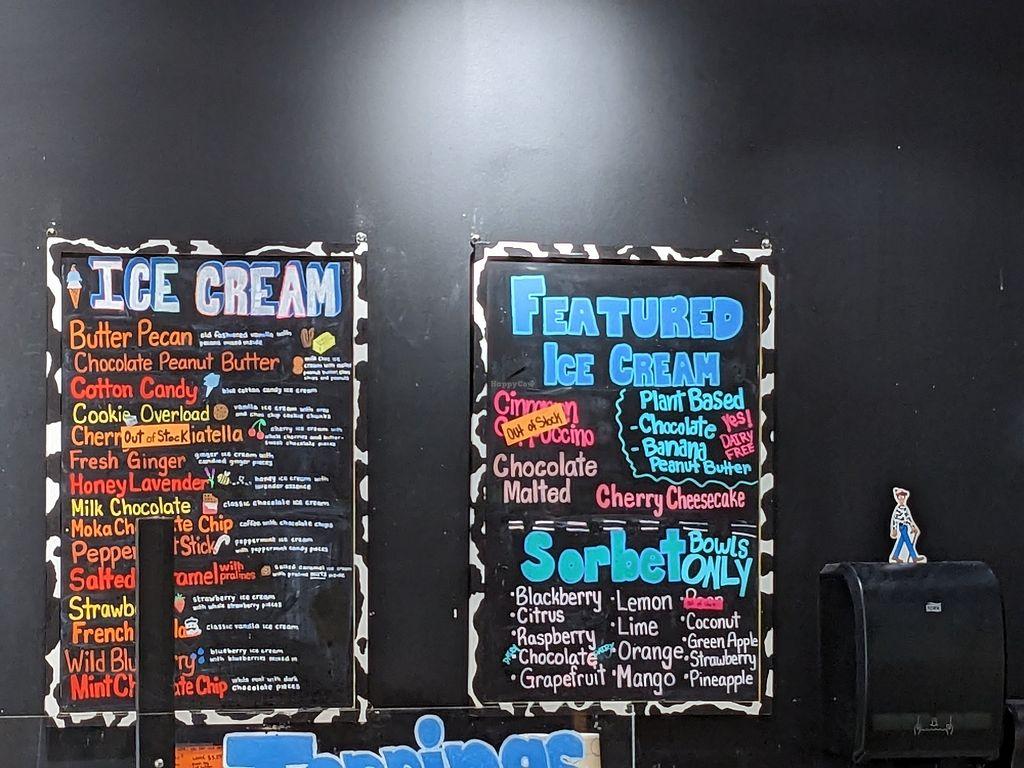 ICE CREAM
Butter Pecan old fashioned vanilla with
pecans mixed inside
Chocolate Peanut Butter
Cotton Candy blue cotton candy ice cream
Cookie Overload vanilla ice cream with oreo
and choc chip cookie chunks
Cherr Out of Stock iatella cherry ice cream with
whole cherries and bitter-
sweet chocolate pieces
Fresh Ginger ginger ice cream with
candied ginger pieces
Honey Lavender honey ice cream with
lavender essence
Milk Chocolate classic chocolate ice cream
Moka Ch te Chip coffee with chocolate chips
Pepper t Stick peppermint ice cream
with peppermint candy pieces
Salted ramel with pralines salted caramel ice cream
with praline
Strawb strawberry ice cream
with whole strawberry pieces
French la classic vanilla ice cream
Wild Blu ry blueberry ice cream
with blueberries mixed in
Mint Ch te Chip white mint with dark
chocolate pieces
FEATURED
ICE CREAM
HappyCow
Cinnamon
Out of Stock
Cappuccino
Chocolate
Malted
Plant Based
-Chocolate
-Banana
Peanut Butter
Yes!
DAIRY
FREE
Cherry Cheesecake
Sorbet BOWLS
ONLY
•Blackberry
•Citrus
•Raspberry
•Chocolate
•Grapefruit
•Lemon
•Lime
•Orange
•Mango
•Coconut
•Green Apple
•Strawberry
•Pineapple
Toppings